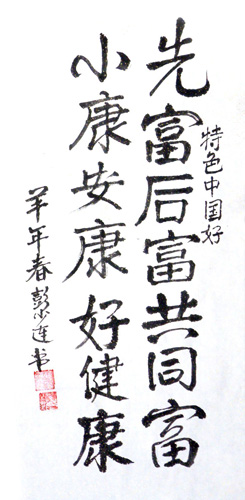 特色中国好
先富后富共同富
小康安康好健康
羊年春彭少连书